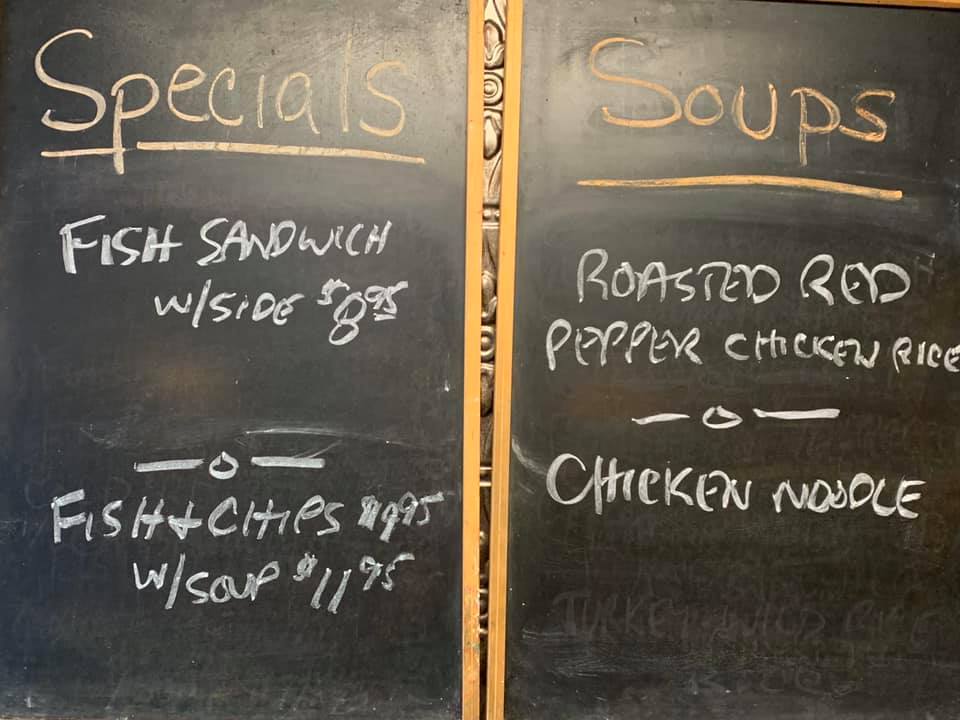 Specials
FISH SANDWICH
W/SIDE $8.95
FISH + CHIPS $9.95
W/SOUP $11.95
Soups
ROASTED RED
PEPPER CHICKEN RICE
CHICKEN NOODLE
TURKEY WILD RICE